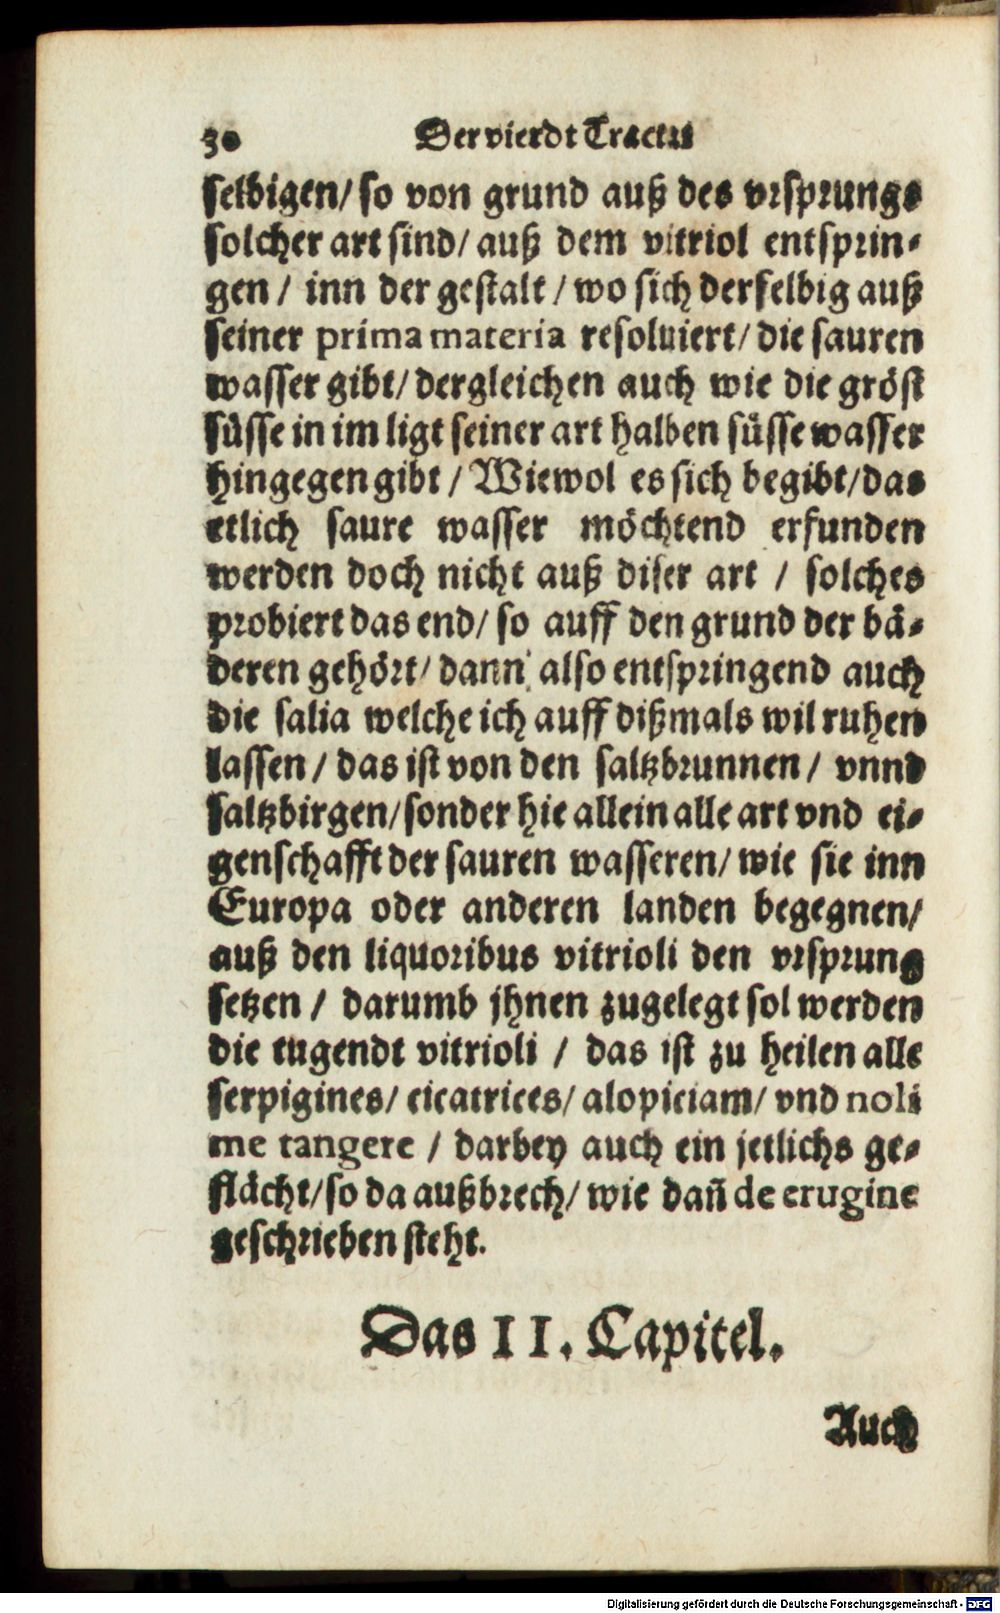 30 Der vierdt Tractat
selbigen/ so von grund auß des vrsprungs
solcher art sind/ auß dem vitriol entsprin⸗
gen / inn der gestalt / wo sich derselbig auß
seiner prima materia resoluiert/ die sauren
wasser gibt/ dergleichen auch wie die gröst
süsse in im ligt seiner art halben süsse wasser
hingegen gibt / Wiewol es sich begibt/ das
etlich saure wasser möchtend erfunden
werden doch nicht auß diser art / solches
probiert das end/ so auff den grund der bä⸗
deren gehört/ dann also entspringend auch
die salia welche ich auff dißmals wil ruhen
lassen / das ist von den saltzbrunnen / vnnd
saltzbirgen/ sonder hie allein alle art vnd ei⸗
genschafft der sauren wasseren/ wie sie inn
Europa oder anderen landen begegnen/
auß den liquoribus vitrioli den vrsprung
setzen / darumb jhnen zugelegt sol werden
die tugendt vitrioli / das ist zu heilen alle
serpigines/ cicatrices/ alopiciam/ vnd noli
me tangere / darbey auch ein jetlichs ge⸗
flächt/ so da außbrech/ wie dañ de erugine
geschrieben steht.
Das II. Capitel.
Auch
Digitalisierung gefördert durch die Deutsche Forschungsgemeinschaft - DFG